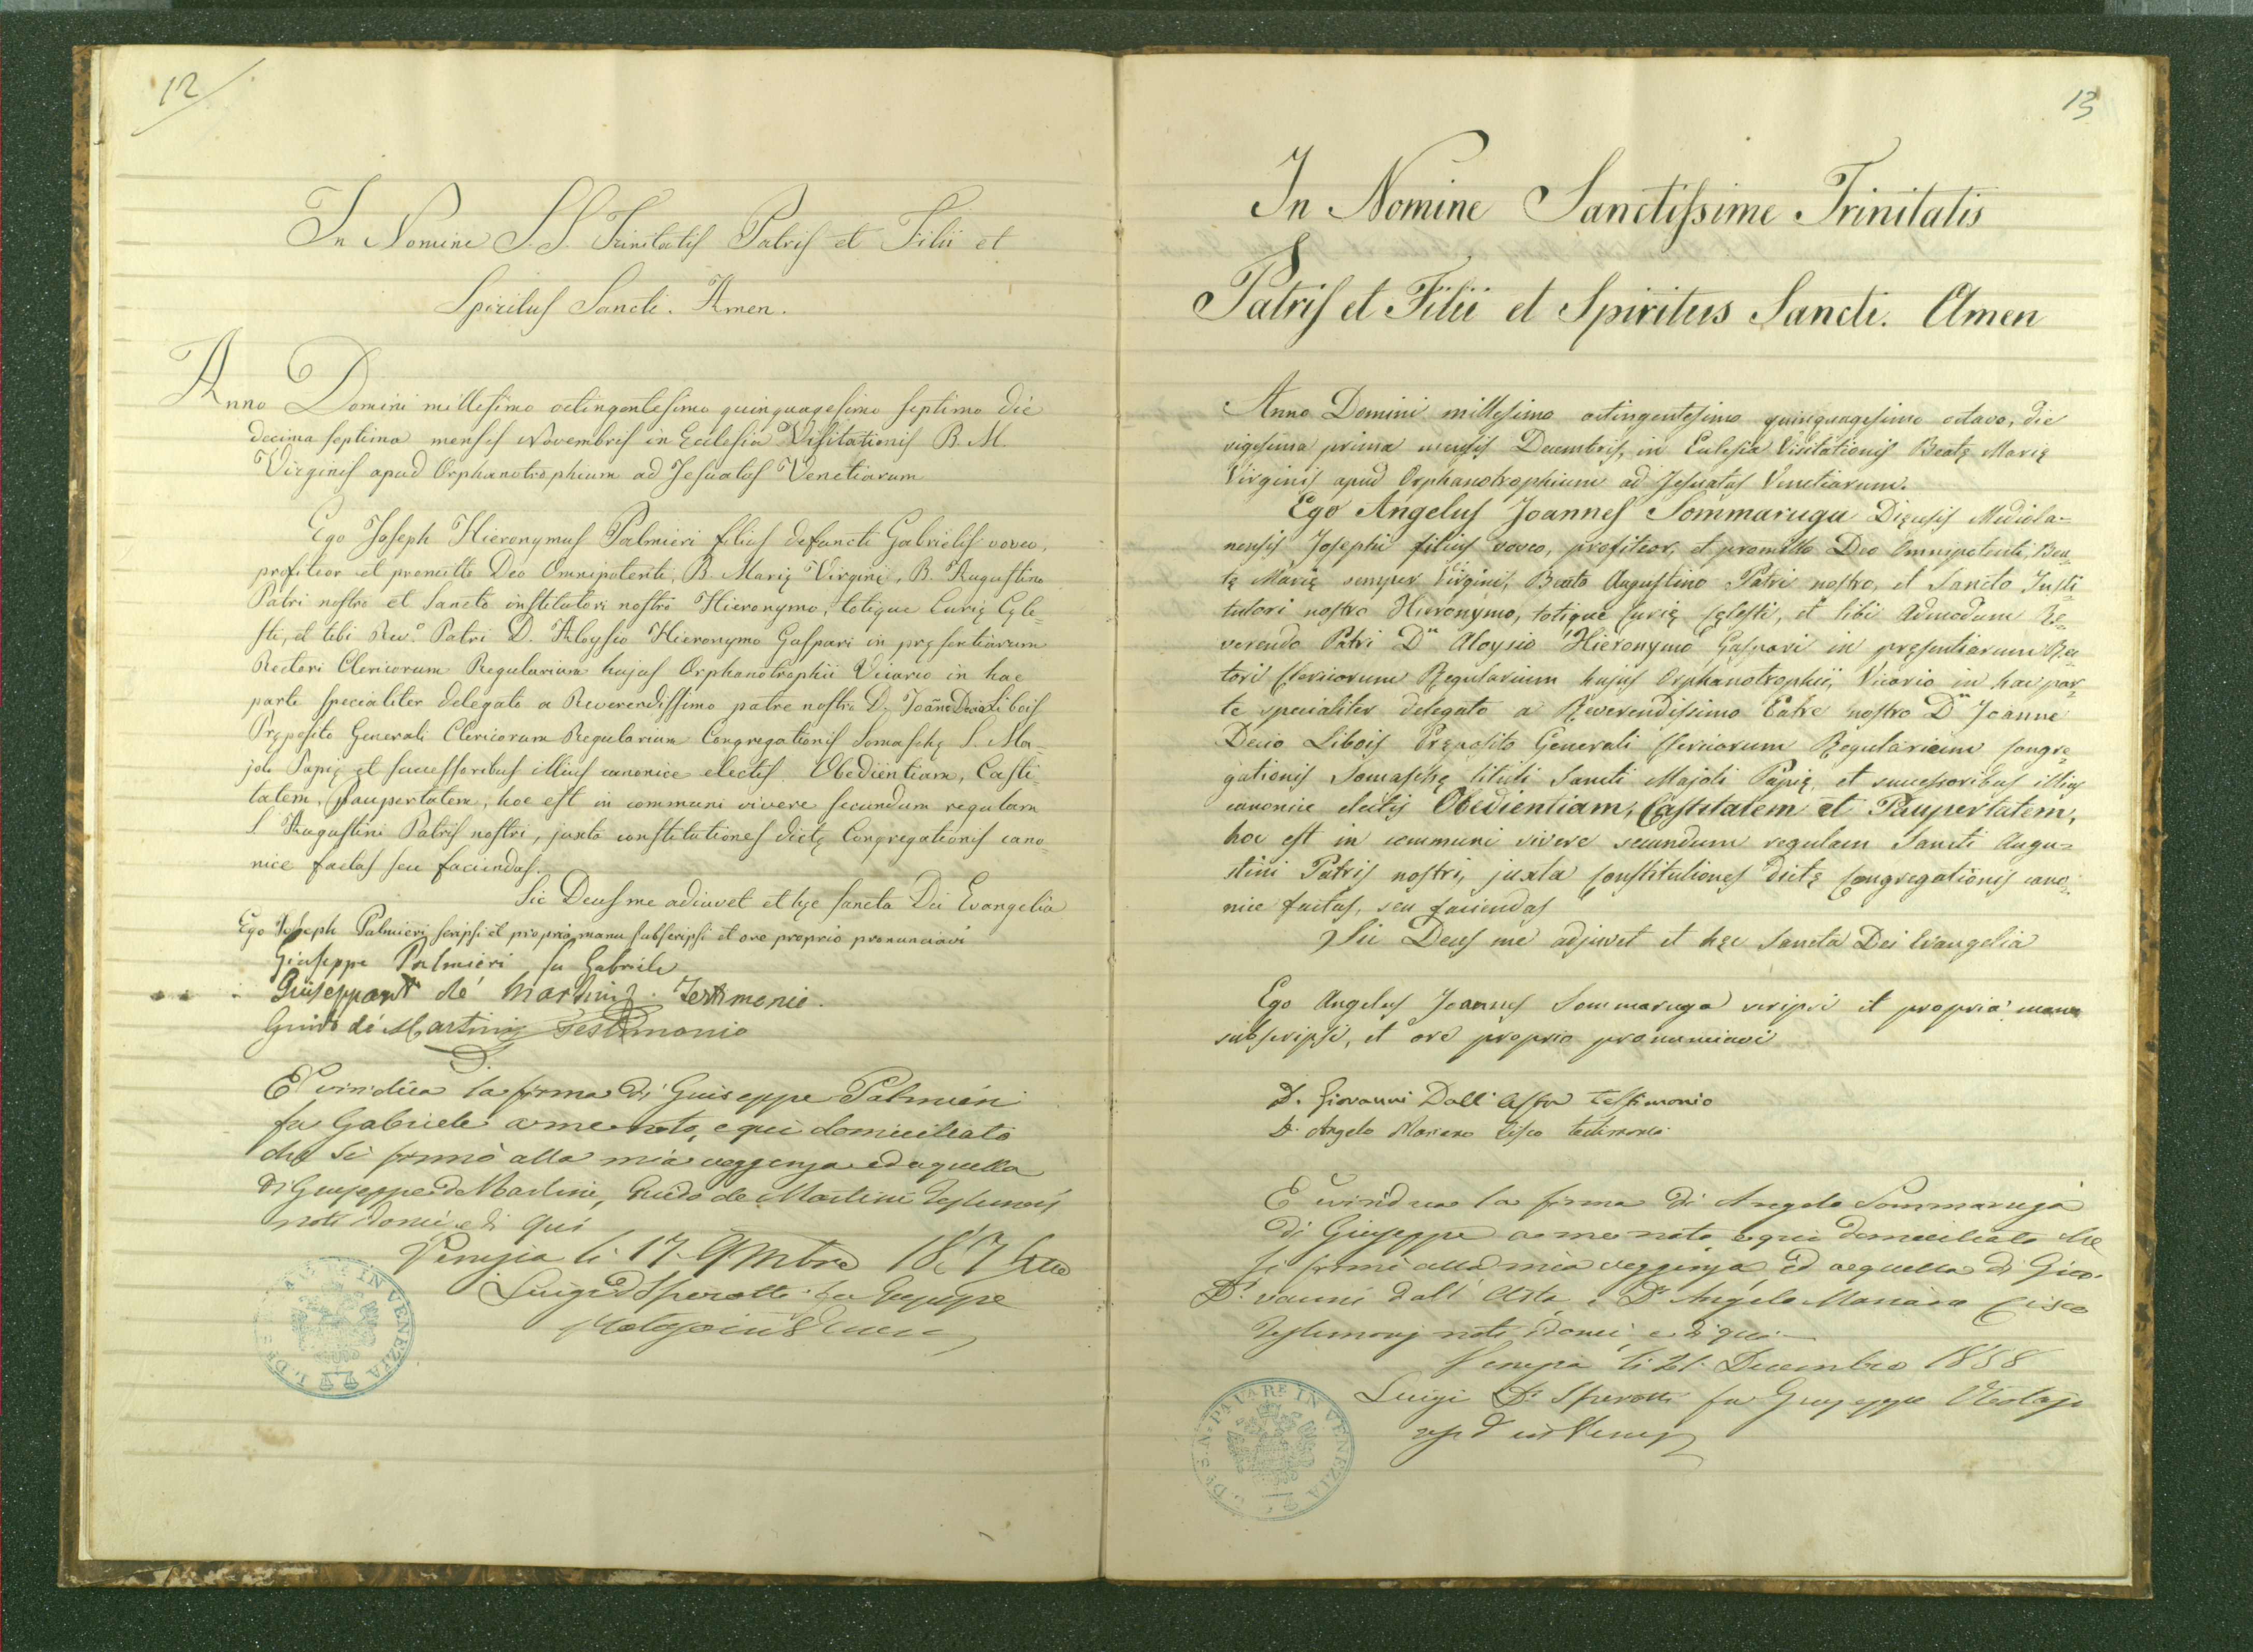 12
In Nomine S.S. Trinitatis Patris et Filii et
Spiritus Sancti. Amen.
Anno Domini millesimo octingentesimo quinquagesimo septimo die
decima septima mensis Novembris in Ecclesia Visitationis B. M.
Virginis apud Orphanotrophium ad Jesuatos Venetiarum
Ego Joseph Hieronymus Palmieri filius defuncti Gabrielis voveo,
profiteor et promitto Deo Omnipotenti, B. Marię Virgini, B. Augustino
Patri nostro et Sancto institutori nostro Hieronymo, totique Curię Cęle=
sti, et tibi Rev.º Patri D. Aloysio Hieronymo Gaspari in pręsentiarum
Rectori Clericorum Regularium hujus Orphanotrophii Vicario in hac
parte specialiter delegato a Reverendissimo patre nostro D. Joãne Decio Libois
Pręposito Generali Clericorum Regularium Congregationis Somaschę S. Ma=
joli Papię et successoribus illius canonice electis Obedientiam, Casti=
tatem, Paupertatem, hoc est in communi vivere secundum regulam
S Augustini Patris nostri, juxta constitutiones dictę Congregationis cano=
nice factas seu faciendas.
Sic Deus me adiuvet et hęc sancta Dei Evangelia
Ego Joseph Palmieri scripsi et propria manu subscripsi et ore proprio pronunciavi
Giuseppe Palmieri fu Gabriele
Giuseppe de Martini Testimonio.
Guido de Martini Testimonio
D.
E' viridica la firma di Guiseppe Palmieri
fu Gabriele a me noto, e qui domiciliato
che si firmò alla mia veggenza ed a quella
di Giuseppe de Martini, Guido de Martini Testimonj
noti idonei e di qui
Venezia li 17. 9mbre 1857
Luigi D Sperotti fu Giuseppe
IN VENEZIA
13
In Nomine Sanctissime Trinitatis
Patris et Filii et Spiritus Sancti. Amen
Anno Domini millesimo octingentesimo quinquagesimo octavo, die
vigesima prima mensis Decembris, in Eclesia Visitationis Beatę Marię
Virginis apud Orphanotrophium ad Jesuatos Venetiarum.
Ego Angelus Joannes Sommaruga Dięcesis Mediola=
nensis Josephi filius voveo, profiteor, et promitto Deo Omnipotenti, Bea=
tę Marię semper Virgini, Beato Augustino Patri nostro, et Sancto Insti=
tutori nostro Hieronymo, totique Curię Cęlesti, et tibi Admodum Re=
verendo Patri Dn Aloysio Hieronymo Gaspari in pręsentiarum Rec=
tori Clericorum Regularium hujus Orphanotrophii, Vicario in hac par=
te specialiter delegato a Reverendissimo Patre nostro Dn Joanne
Decio Libois Pręposito Generali Clericorum Regularium Congre=
gationis Somaschę tituli Sancti Majoli Papię, et successoribus illius
canonice electis Obedientiam, Castitatem et Paupertatem,
hoc est in communi vivere secundum regulam Sancti Augu=
stini Patris nostri, juxta Constitutiones dictę Congregationis cano=
nice factas, seu faciendas
Sic Deus me adjuvet et hęc Sancta Dei Evangelia
Ego Angelus Joannes Sommaruga scripsi et propria manu
subscripsi, et ore proprio pronunciavi
D. Giovanni Dall' Asta testimonio
D. Angelo Mariano Cisco testimonio
E' viridica la firma di Angelo Sommaruga
di Giuseppe a me noto e qui domiciliato che
si firmò alla mia veggenza, ed a quella di Gio=
Dr. vanni dall' Asta, e Dr Angelo Cisco
Testimonj noti idonei, e di qui
Venezia li 21. Decembre 1858
Luigi Dr Sperotti fu Giuseppe
IN VENEZIA